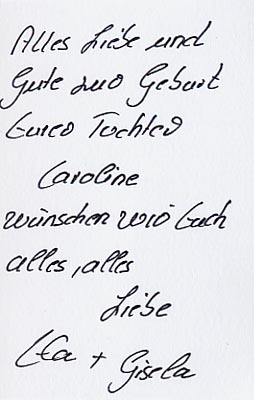 Alles Liebe und
Gute zur Geburt
Eurer Tochter
Caroline
wünschen wir Euch
alles, alles
Liebe
Eta + Gisela